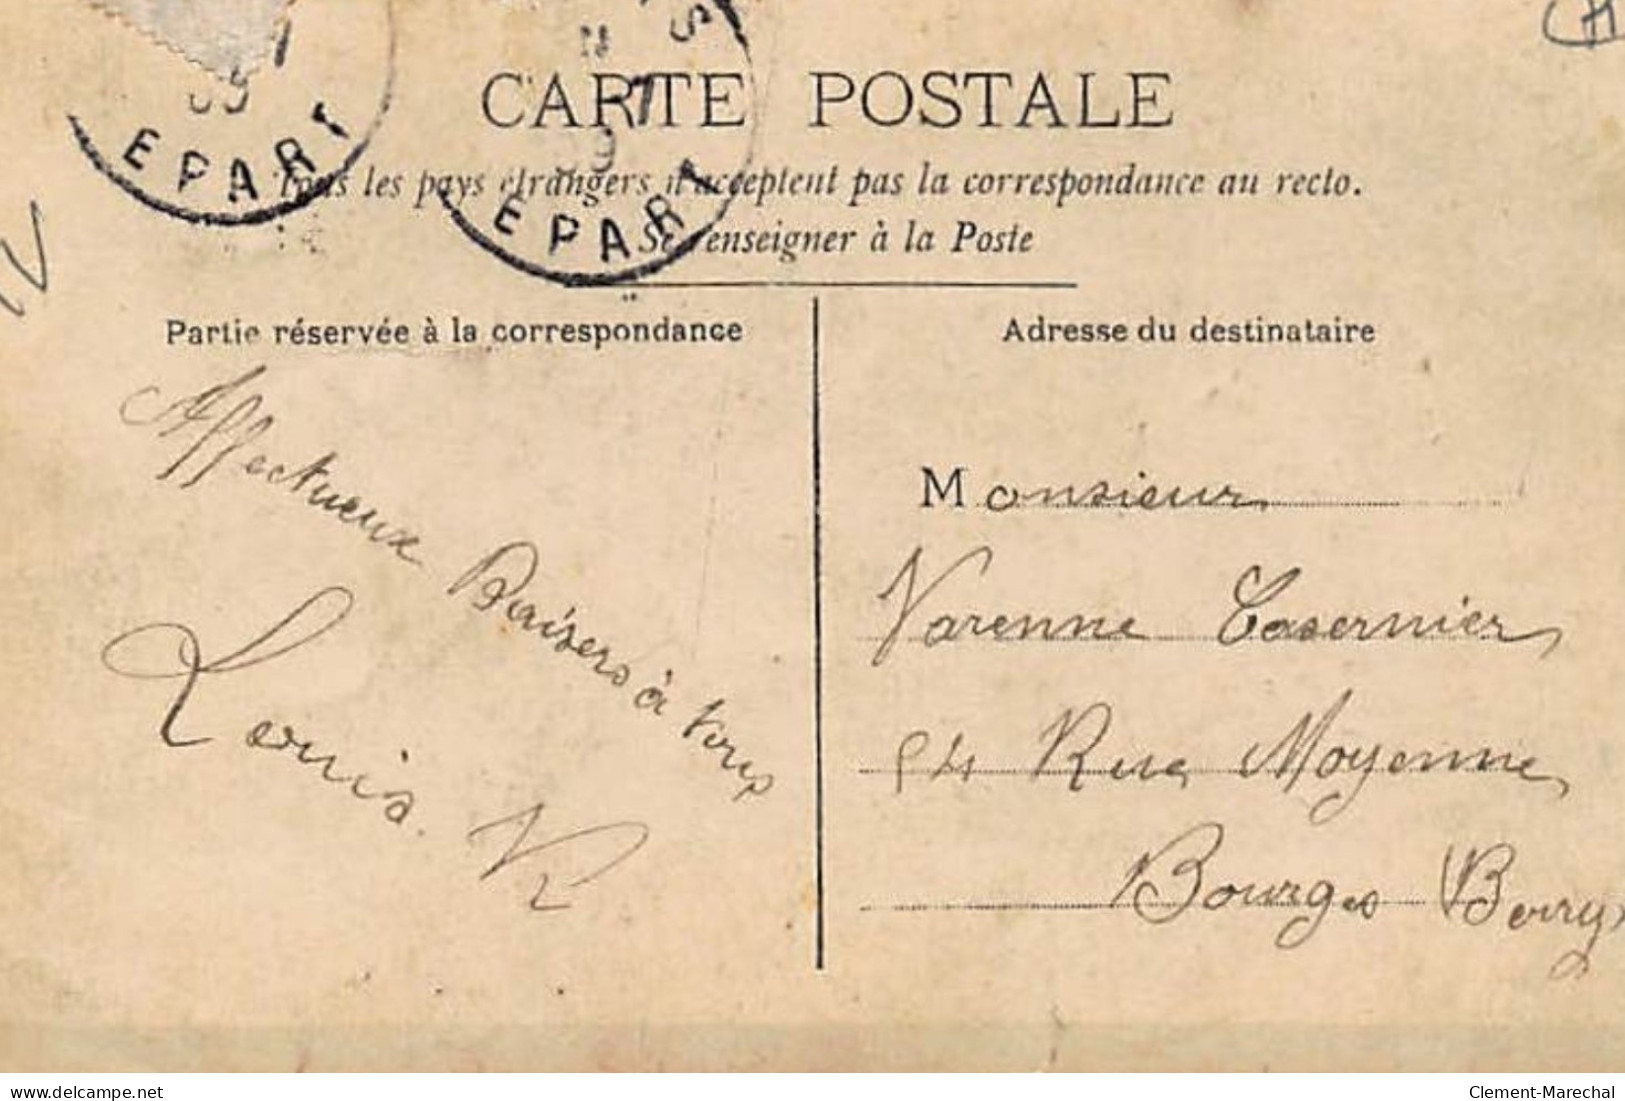 CARTE POSTALE
Tous les pays étrangers n'acceptent pas la correspondance au recto.
Se renseigner à la Poste
Partie réservée à la correspondance
Affectueux Baisers à tous
Louis. V
Adresse du destinataire
Monsieur
Varenne Casernier
54 Rue Moyenne
Bourges (Berry)
EPART
EPART
delcampe.net
Clement-Marechal